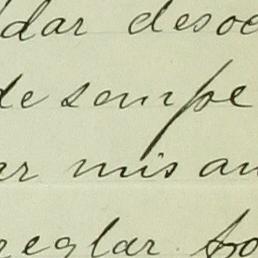 dar deso
de sempe
ar mis an
reglar